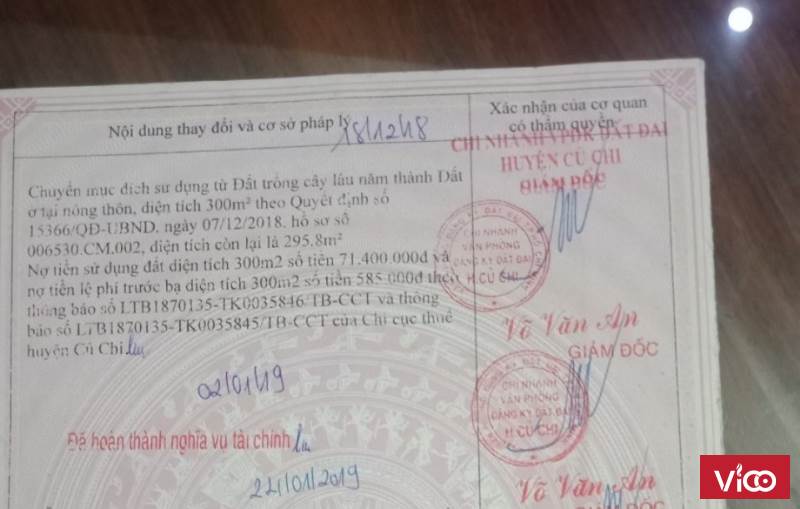 Nội dung thay đổi và cơ sở pháp lý
18/12/18
Xác nhận của cơ quan
có thẩm quyền
CHI NHÁNH VPĐK ĐẤT ĐAI
HUYỆN CỦ CHI
GIÁM ĐỐC
Chuyển mục đích sử dụng từ Đất trồng cây lâu năm thành Đất
ở tại nông thôn, diện tích 300m² theo Quyết định số
15366/QĐ-UBND, ngày 07/12/2018. hồ sơ số
006530.CM.002, diện tích còn lại là 295,8m²
Nợ tiền sử dụng đất diện tích 300m2 số tiền 71.400.000đ và
nợ tiền lệ phí trước bạ diện tích 300m2 số tiền 585.000đ theo
thông báo số LTB1870135-TK0035846/TB-CCT và thông
báo số LTB1870135-TK0035845/TB-CCT của Chi cục thuế
huyện Củ Chi
CHI NHÁNH
VĂN PHÒNG
ĐĂNG KÝ ĐẤT ĐAI
H.CỦ CHI
Võ Văn An
GIÁM ĐỐC
02/01/19
Đã hoàn thành nghĩa vụ tài chính
CHI NHÁNH
VĂN PHÒNG
ĐĂNG KÝ ĐẤT ĐAI
H.CỦ CHI
22/01/2019
Võ Văn An
GIÁM ĐỐC
Vico